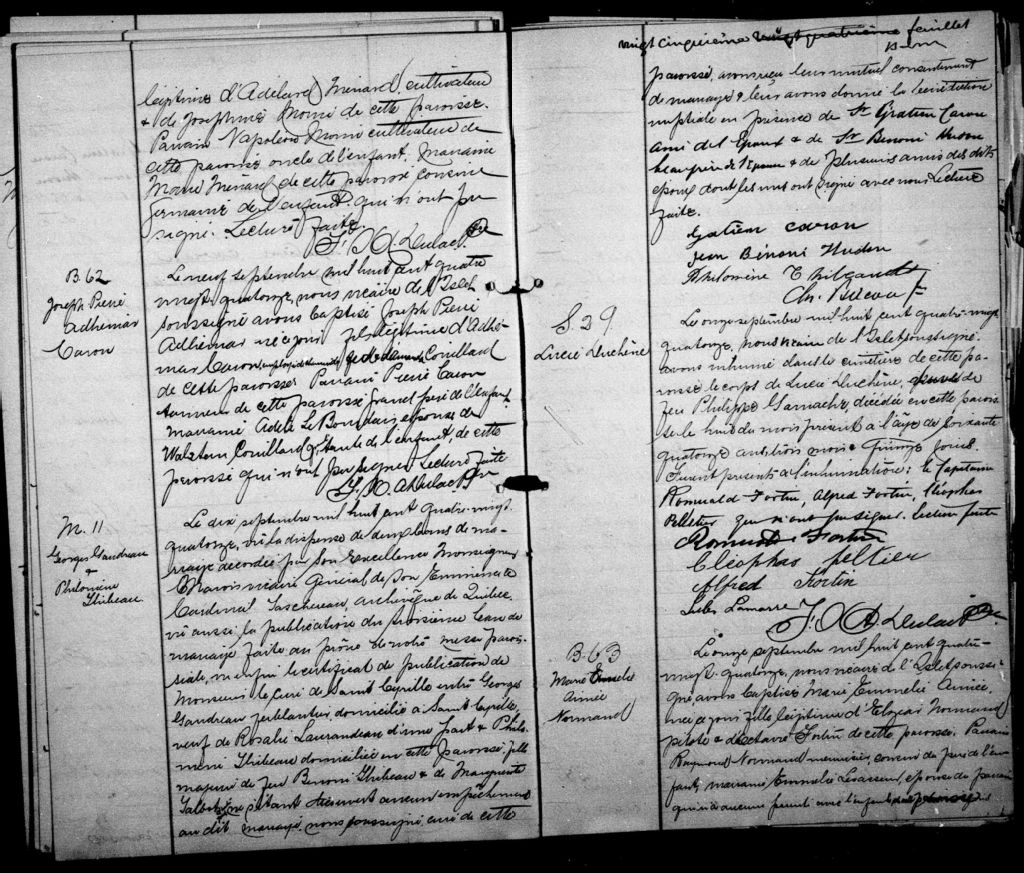 légitime d'Adelard Ménard, cultivateur
& de Josephine Morin de cette paroisse.
Parrain Napoléon Morin cultivateur de
cette paroisse oncle de l'enfant. Marraine
Marie Ménard de cette paroisse cousine
germaine de l'enfant qui n'ont pu
signé. Lecture faite.
B. 62
Joseph Pierre
Adhémar
Caron
Le neuf septembre mil huit cent quatre
vingt quatorze, nous vicaire de l'Islet
soussigné avons baptisé Joseph Pierre
Adhémar né ce jour fils légitime d'Adhé-
mar Caron, Couillard
de cette paroisse. Parrain Pierre Caron
tanneur de cette paroisse grand père de l'enfant
marraine Adèle Le Bourdais épouse de
Walstein Couillard, tante de l'enfant, de cette
paroisse qui n'ont pu signer. Lecture faite
M. 11
Georges Gaudreau
&
Philomène
Thibeau
Le dix septembre mil huit cent quatre-vingt
quatorze, vu la dispense de deux bans de ma-
riage accordée par Son Excellence Monseigneur
Marois vicaire général de Son Eminence le
Cardinal Taschereau, archevêque de Québec,
vu aussi la publication du troisième ban de
mariage faite au prône de notre messe parois-
siale, vu enfin le certificat de publication de
Monsieur le curé de Saint Cyrille entre Georges
Gaudreau ferblantier, domicilié à Saint Cyrille,
veuf de Rosalie Laurandeau d'une part & Philo-
mène Thibeau domiciliée en cette paroisse fille
majeure de feu Benoni Thibeau & de Marguerite
Talbot, ne s'étant découvert aucun empêchement
au dit mariage, nous soussigné, curé de cette
vingt cinquième vingt quatrième feuillet
paroisse, avons reçu leur mutuel consentement
de mariage & leur avons donné la bénédiction
nuptiale en présence de Sr Gratien Caron
ami de l'Epoux & de Sr Benoni Hudon
beau frère de l'Epouse & de plusieurs amis des dits
époux dont les uns ont signé avec nous. Lecture
faite.
Gatien Caron
Jean Binoni Hudon
Philomène Thibeault
S. 29
Lucie Duchène
Le onze septembre mil huit cent quatre-vingt
quatorze, nous vicaire de l'Islet soussigné
avons inhumé dans le cimetière de cette pa-
roisse le corps de Lucie Duchène, épouse de
feu Philippe Gamache, décédée en cette parois-
se le huit du mois présent à l'âge de soixante
quatorze ans trois mois & quinze jours.
Furent présents à l'inhumation: le Capitaine
Romuald Fortin, Alfred Fortin, Cléophas
Pelletier qui n'ont pu signer. Lecture faite
Romuald Fortin
Cléophas Peltier
Alfred Fortin
Jules Lamarre
B. 63
Marie Emmelie
Aimée
Normand
Le onze septembre mil huit cent quatre-
vingt quatorze, nous vicaire de l'Islet soussi-
gné avons baptisé Marie Emmelie Aimée,
née ce jour, fille légitime d'Elzear Normand
pilote & d'Octavie Fortin de cette paroisse. Parrain
Raymond Normand menuisier, cousin du père de l'en-
fant, marraine Emmelie Levasseur, épouse du parrain
qui n'a aucune parenté avec l'enfant